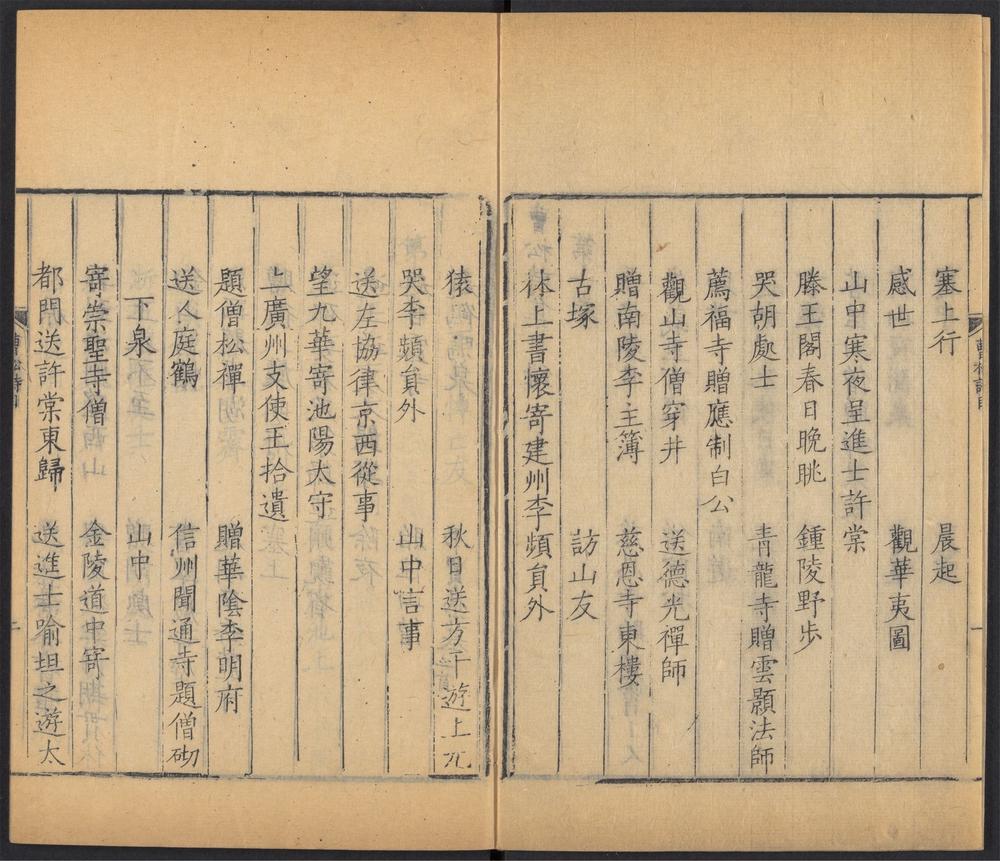 塞上行　晨起
感世　觀華夷圖
山中寒夜呈進士許棠
滕王閣春日晚眺　鍾陵野步
哭胡處士　青龍寺贈雲顥法師
薦福寺贈應制白公
觀山寺僧穿井　送德光禪師
贈南陵李主簿　慈恩寺東樓
古塚　訪山友
林上書懷寄建州李頻貟外
猿　秋日送方干遊上元
哭李頻貟外　山中言事
送左協律京西從事
望九華寄池陽太守
上廣州支使王拾遺
題僧松禪　贈華陰李明府
送人庭鶴　信州聞通寺題僧砌
下泉　山中
寄崇聖寺僧　金陵道中寄
都門送許棠東歸　送進士喻坦之遊太